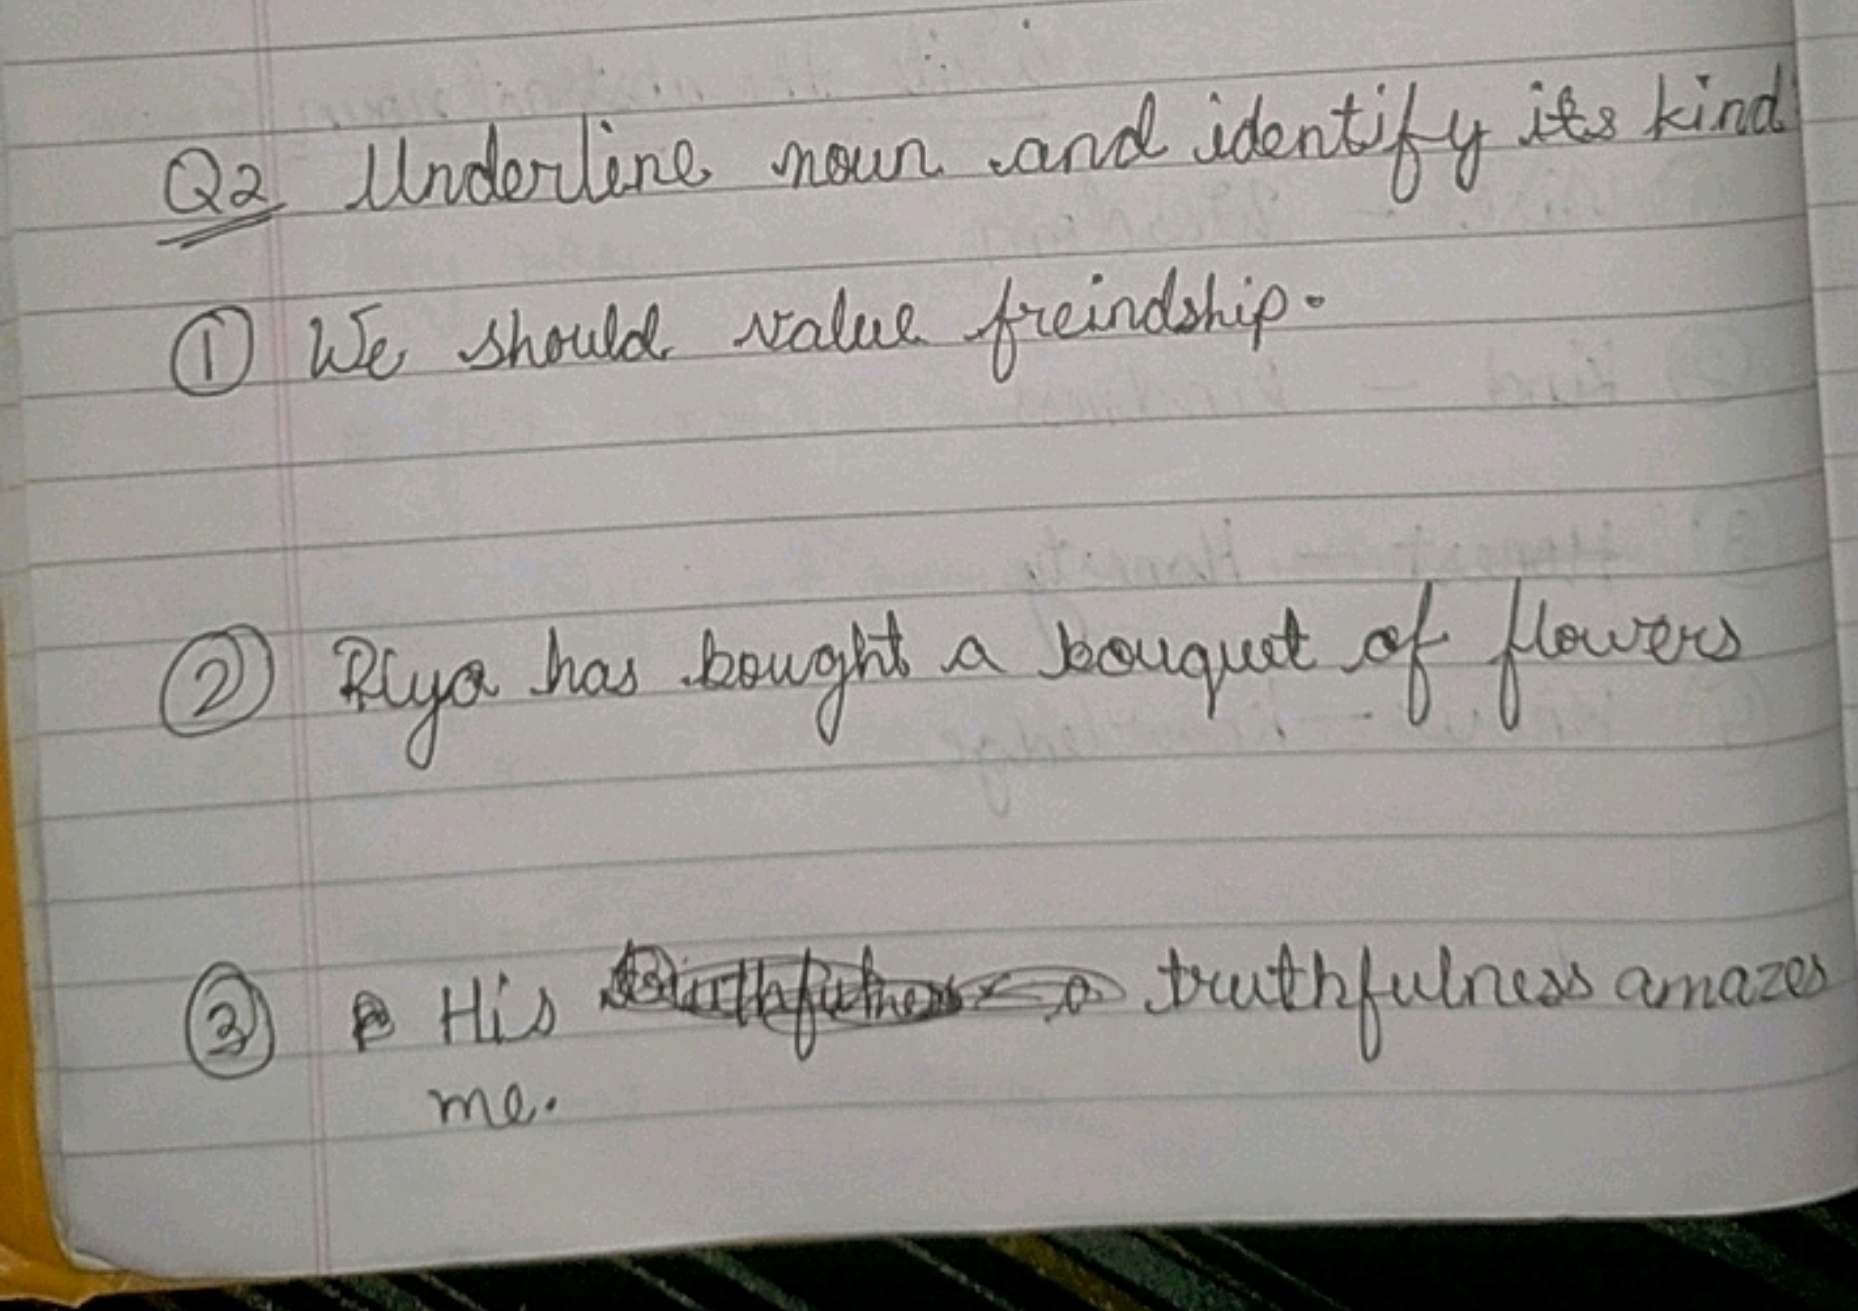 Q2 Underline noun and identify its kind
① We should value freindship.
② Riya has bought a bouquet of flowers
③ His truthfulness amazes
me.